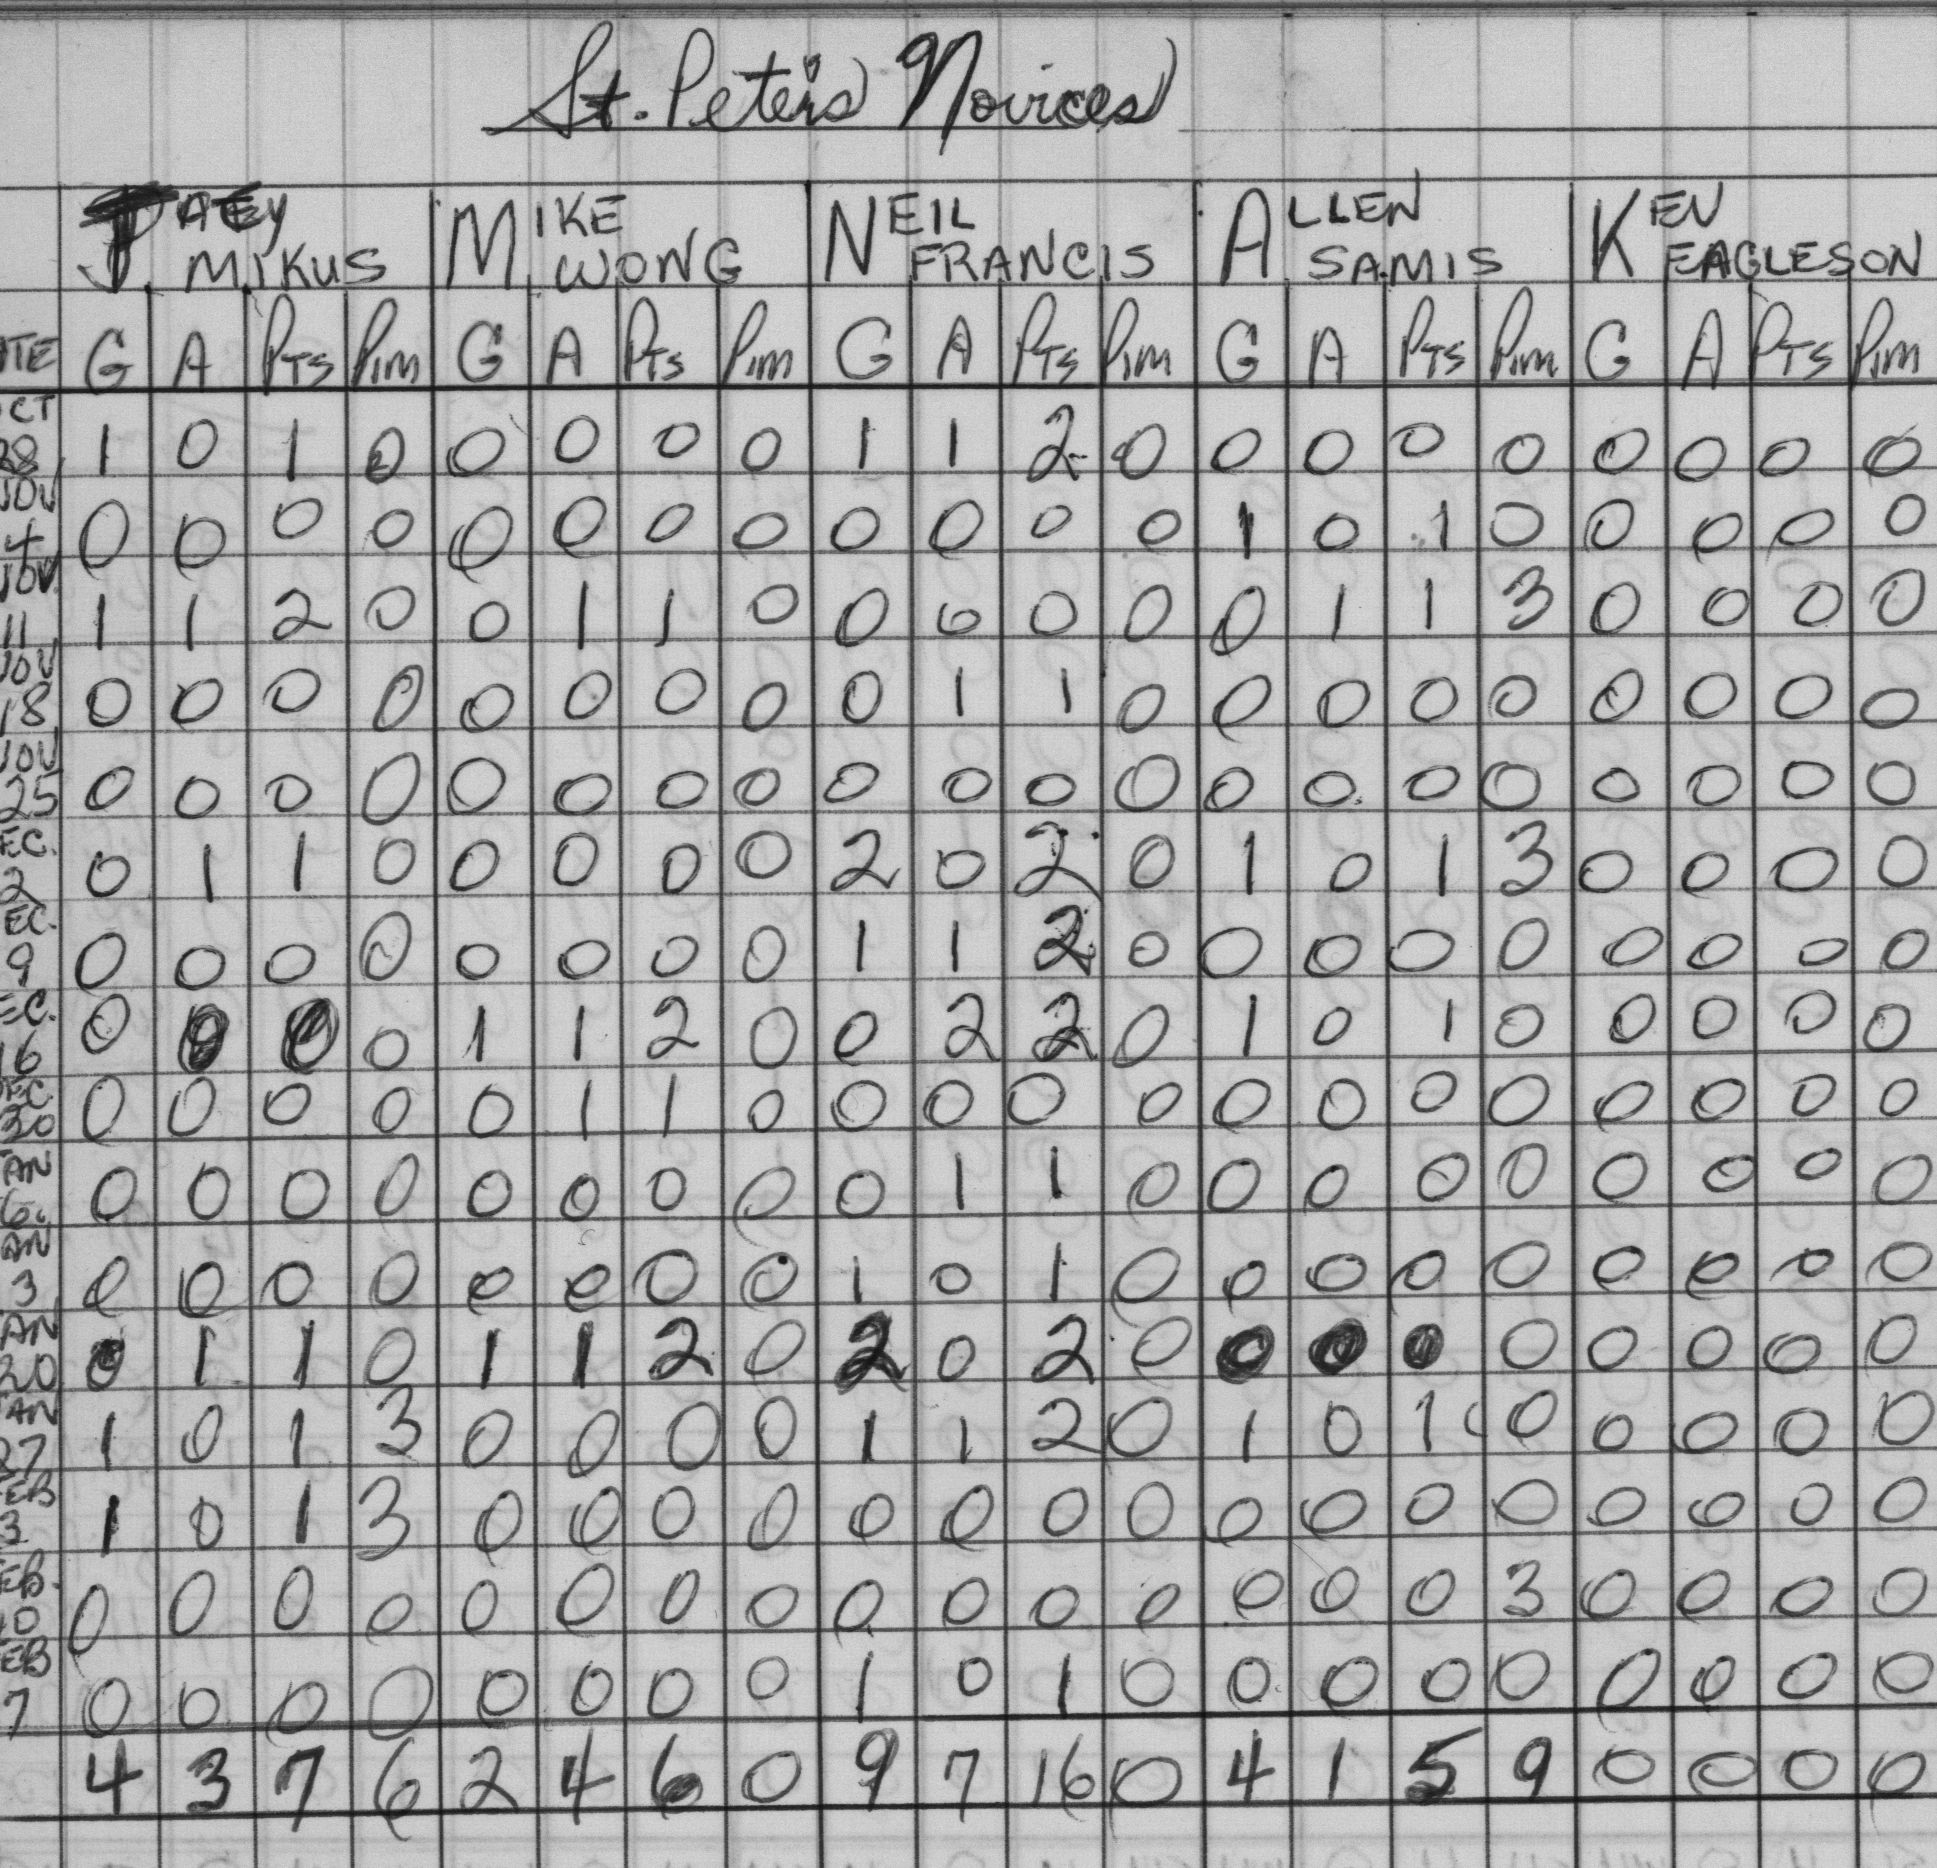 St. Peter's Novices
JATEY MIKE NEIL ALLEN KEN
MIKUS WONG FRANCIS SAMIS EAGLESON
TE G A PTS Pim G A PTS Pim G A PTS Pim G A PTS Pim G A PTS Pim
CT 28 1 0 1 0 0 0 0 0 1 1 2 0 0 0 0 0 0 0 0 0
NOV 4 0 0 0 0 0 0 0 0 0 0 0 0 1 0 1 0 0 0 0 0
NOV 11 1 1 2 0 0 1 1 0 0 0 0 0 0 1 1 3 0 0 0 0
NOV 18 0 0 0 0 0 0 0 0 0 1 1 0 0 0 0 0 0 0 0 0
NOV 25 0 0 0 0 0 0 0 0 0 0 0 0 0 0 0 0 0 0 0 0
EC. 2 0 1 1 0 0 0 0 0 2 0 2 0 1 0 1 3 0 0 0 0
EC. 9 0 0 0 0 0 0 0 0 1 1 2 0 0 0 0 0 0 0 0 0
EC. 16 0 0 0 0 1 1 2 0 0 2 2 0 1 0 1 0 0 0 0 0
EC. 30 0 0 0 0 0 1 1 0 0 0 0 0 0 0 0 0 0 0 0 0
AN 6 0 0 0 0 0 0 0 0 0 1 1 0 0 0 0 0 0 0 0 0
AN 3 0 0 0 0 0 0 0 0 1 0 1 0 0 0 0 0 0 0 0 0
AN 20 0 1 1 0 1 1 2 0 2 0 2 0 0 0 0 0 0 0 0 0
AN 27 1 0 1 3 0 0 0 0 1 1 2 0 1 0 1 0 0 0 0 0
EB 3 1 0 1 3 0 0 0 0 0 0 0 0 0 0 0 0 0 0 0 0
EB. 10 0 0 0 0 0 0 0 0 0 0 0 0 0 0 0 3 0 0 0 0
EB 7 0 0 0 0 0 0 0 0 1 0 1 0 0 0 0 0 0 0 0 0
4 3 7 6 2 4 6 0 9 7 16 0 4 1 5 9 0 0 0 0